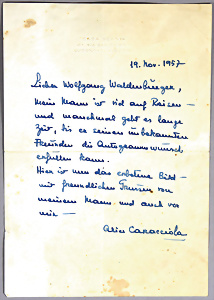 19. Nov. 1957
Lieber Wolfgang Waldenburger,
mein Mann ist viel auf Reisen –
und manchmal geht es lange
Zeit, bis er seinen unbekannten
Freunden die Autogrammwunsch
erfüllen kann.
Hier ist nun das erbetene Bild –
mit freundlichen Grüssen von
meinem Mann und auch von
mir –
Alice Caracciola